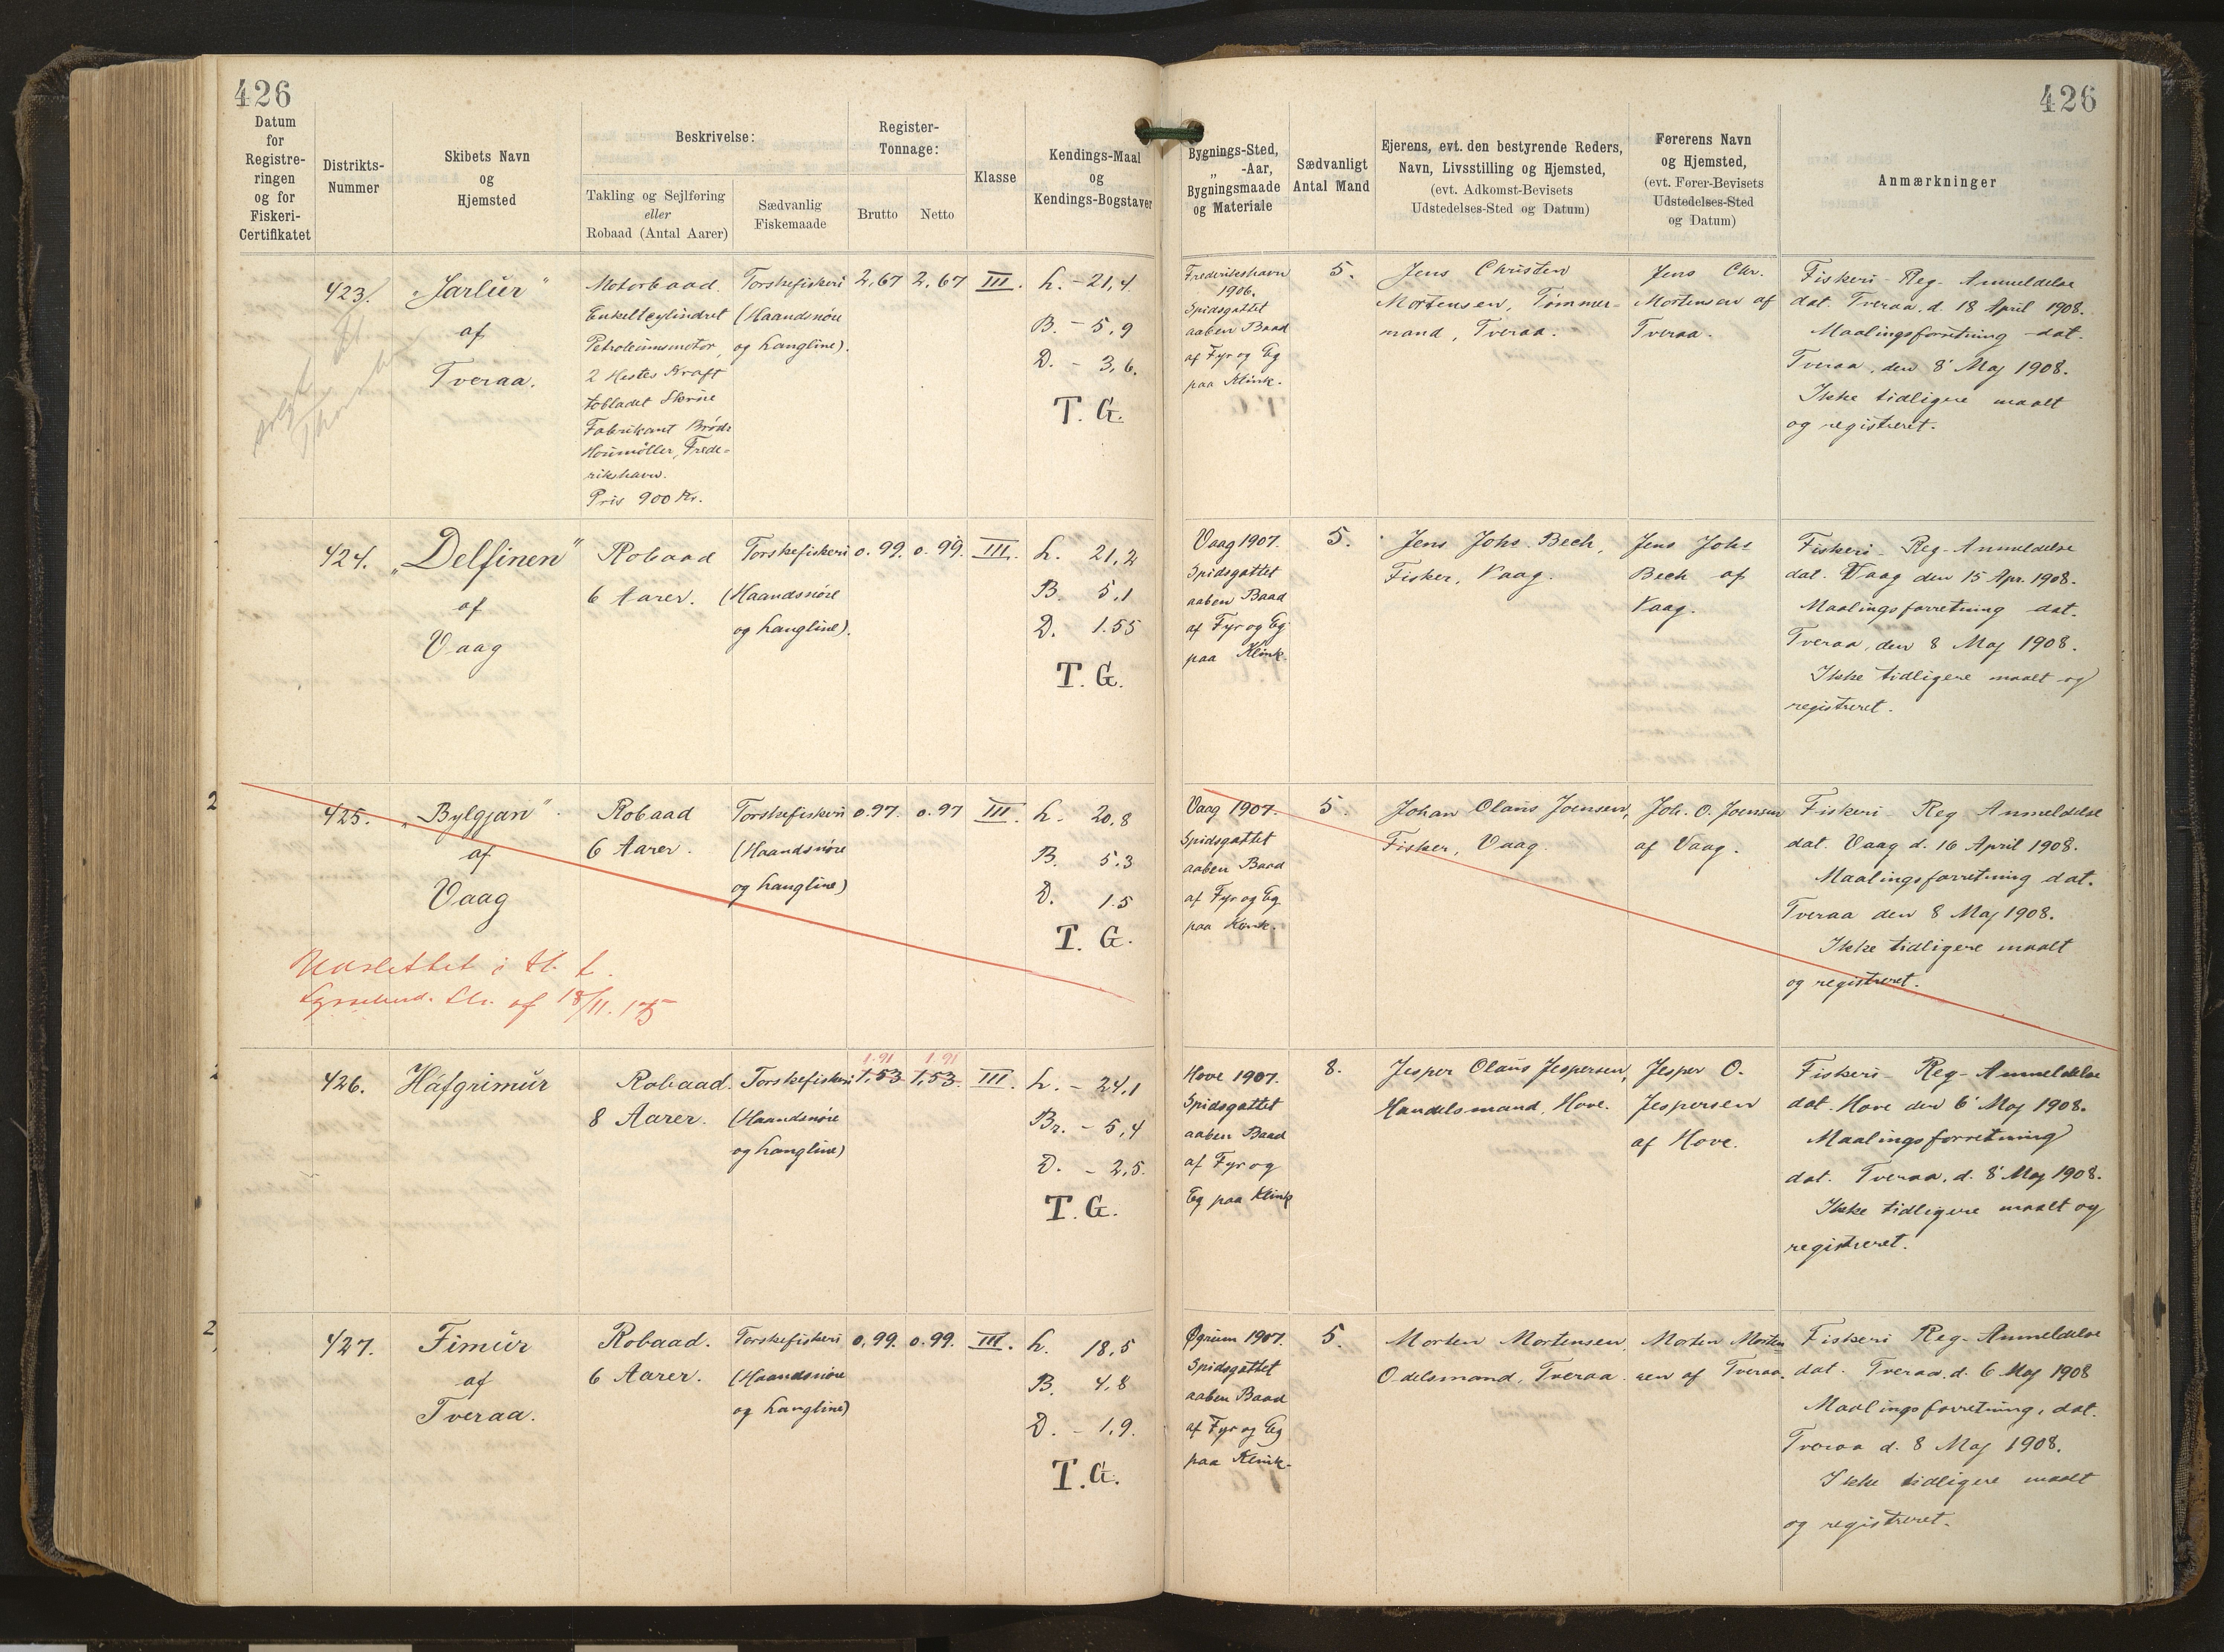 426
426
Datum
for
Registre-
ringen
og for
Fiskeri-
Certifikatet
Distrikts-
Nummer
Skibets Navn
og
Hjemsted
Beskrivelse:
Takling og Sejlføring
eller
Robaad (Antal Aarer)
Sædvanlig
Fiskemaade
Register-
Tonnage:
Brutto
Netto
Klasse
Kendings-Maal
og
Kendings-Bogstaver
Bygnings-Sted,
„ -Aar,
Bygningsmaade
og Materiale
Sædvanligt
Antal Mand
Ejerens, evt. den bestyrende Reders,
Navn, Livsstilling og Hjemsted,
(evt. Adkomst-Bevisets
Udstedelses-Sted og Datum)
Førerens Navn
og Hjemsted,
(evt. Fører-Bevisets
Udstedelses-Sted
og Datum)
Anmærkninger
423.
„Jarlur"
af
Tveraa.
Motorbaad.
Enkeltcylindret
Petroleumsmotor,
2 Hestes Kraft
tobladet Skrue
Fabrikant Brødr
Houmøller, Frede=
rikshavn.
Pris 900 Kr.
Torskefiskeri
(Haandsnøre
og Langline).
2,67
2,67
III.
L. - 21,4
B. - 5,9
D. - 3,6.
T. G.
Frederikshavn
1906.
Spidsgattet
aaben Baad
af Fyr og Eg
paa Klink.
5.
Jens Christen
Mortensen, Tømmer=
mand, Tveraa.
Jens Chr.
Mortensen af
Tveraa.
Fiskeri- Reg- Anmeldelse
dat. Tveraa, d. 18 April 1908.
Maalingsforretning dat.
Tveraa, den 8' Maj 1908.
Ikke tidligere maalt
og registreret.
424.
„Delfinen"
af
Vaag
Robaad
6 Aarer.
Torskefiskeri
(Haandsnøre
og Langline).
0.99.
0.99.
III.
L. 21,2
B. 5,1
D. 1.55
T. G.
Vaag 1907.
Spidsgattet
aaben Baad
af Fyr og Eg
paa Klink.
5.
Jens Johs. Bech,
Fisker, Vaag.
Jens Johs
Bech af
Vaag.
Fiskeri- Reg- Anmeldelse
dat. Vaag den 15 Apr. 1908.
Maalingsforretning dat.
Tveraa, den 8 Maj 1908.
Ikke tidligere maalt og
registreret.
2
425.
„Bylgjan"
af
Vaag
Robaad
6 Aarer.
Torskefiskeri
(Haandsnøre
og Langline)
0.97.
0.97
III.
L. 20,8
B. 5,3
D. 1.5
T. G.
Udslettet i H. t.
af 18/11.
Vaag 1907.
Spidsgattet
aaben Baad
af Fyr og Eg
paa Klink.
5.
Johan Olaus Joensen,
Fisker, Vaag.
Joh. O. Joensen
af Vaag.
Fiskeri- Reg Anmeldelse
dat. Vaag d. 16 April 1908.
Maalingsforretning dat.
Tveraa den 8 Maj 1908.
Ikke tidligere maalt
og registreret.
426.
Háfgrimur
Robaad.
8 Aarer.
Torskefiskeri
(Haandsnøre
og Langline)
1.91
1,53
1.91
1,53.
III.
L. - 24,1
Br. - 5,4
D. - 2,5.
T. G.
Hove 1907.
Spidsgattet
aaben Baad
af Fyr og
Eg paa Klink
8.
Jesper Olaus Jespersen,
Handelsmand, Hove.
Jesper O.
Jespersen
af Hove.
Fiskeri- Reg- Anmeldelse
dat. Hove den 6' Maj 1908.
Maalingsforretning
dat. Tveraa, d. 8' Maj 1908.
Ikke tidligere maalt og
registreret.
2
427.
Fimur
af
Tveraa.
Robaad.
6 Aarer.
Torskefiskeri
(Haandsnøre
og Langline)
0,99.
0.99.
III.
L. 18,5
B. 4,8
D. - 1,9.
T. G.
Øgrum 1907.
Spidsgattet
aaben Baad
af Fyr og Eg
paa Klink.
5.
Morten Mortensen,
Odelsmand, Tveraa.
Morten Morten=
sen af Tveraa.
Fiskeri Reg- Anmeldelse
dat. Tveraa, d. 6 Maj 1908
Maalingsforretning, dat.
Tveraa d. 8 Maj 1908.
Ikke tidligere maalt
og registreret.